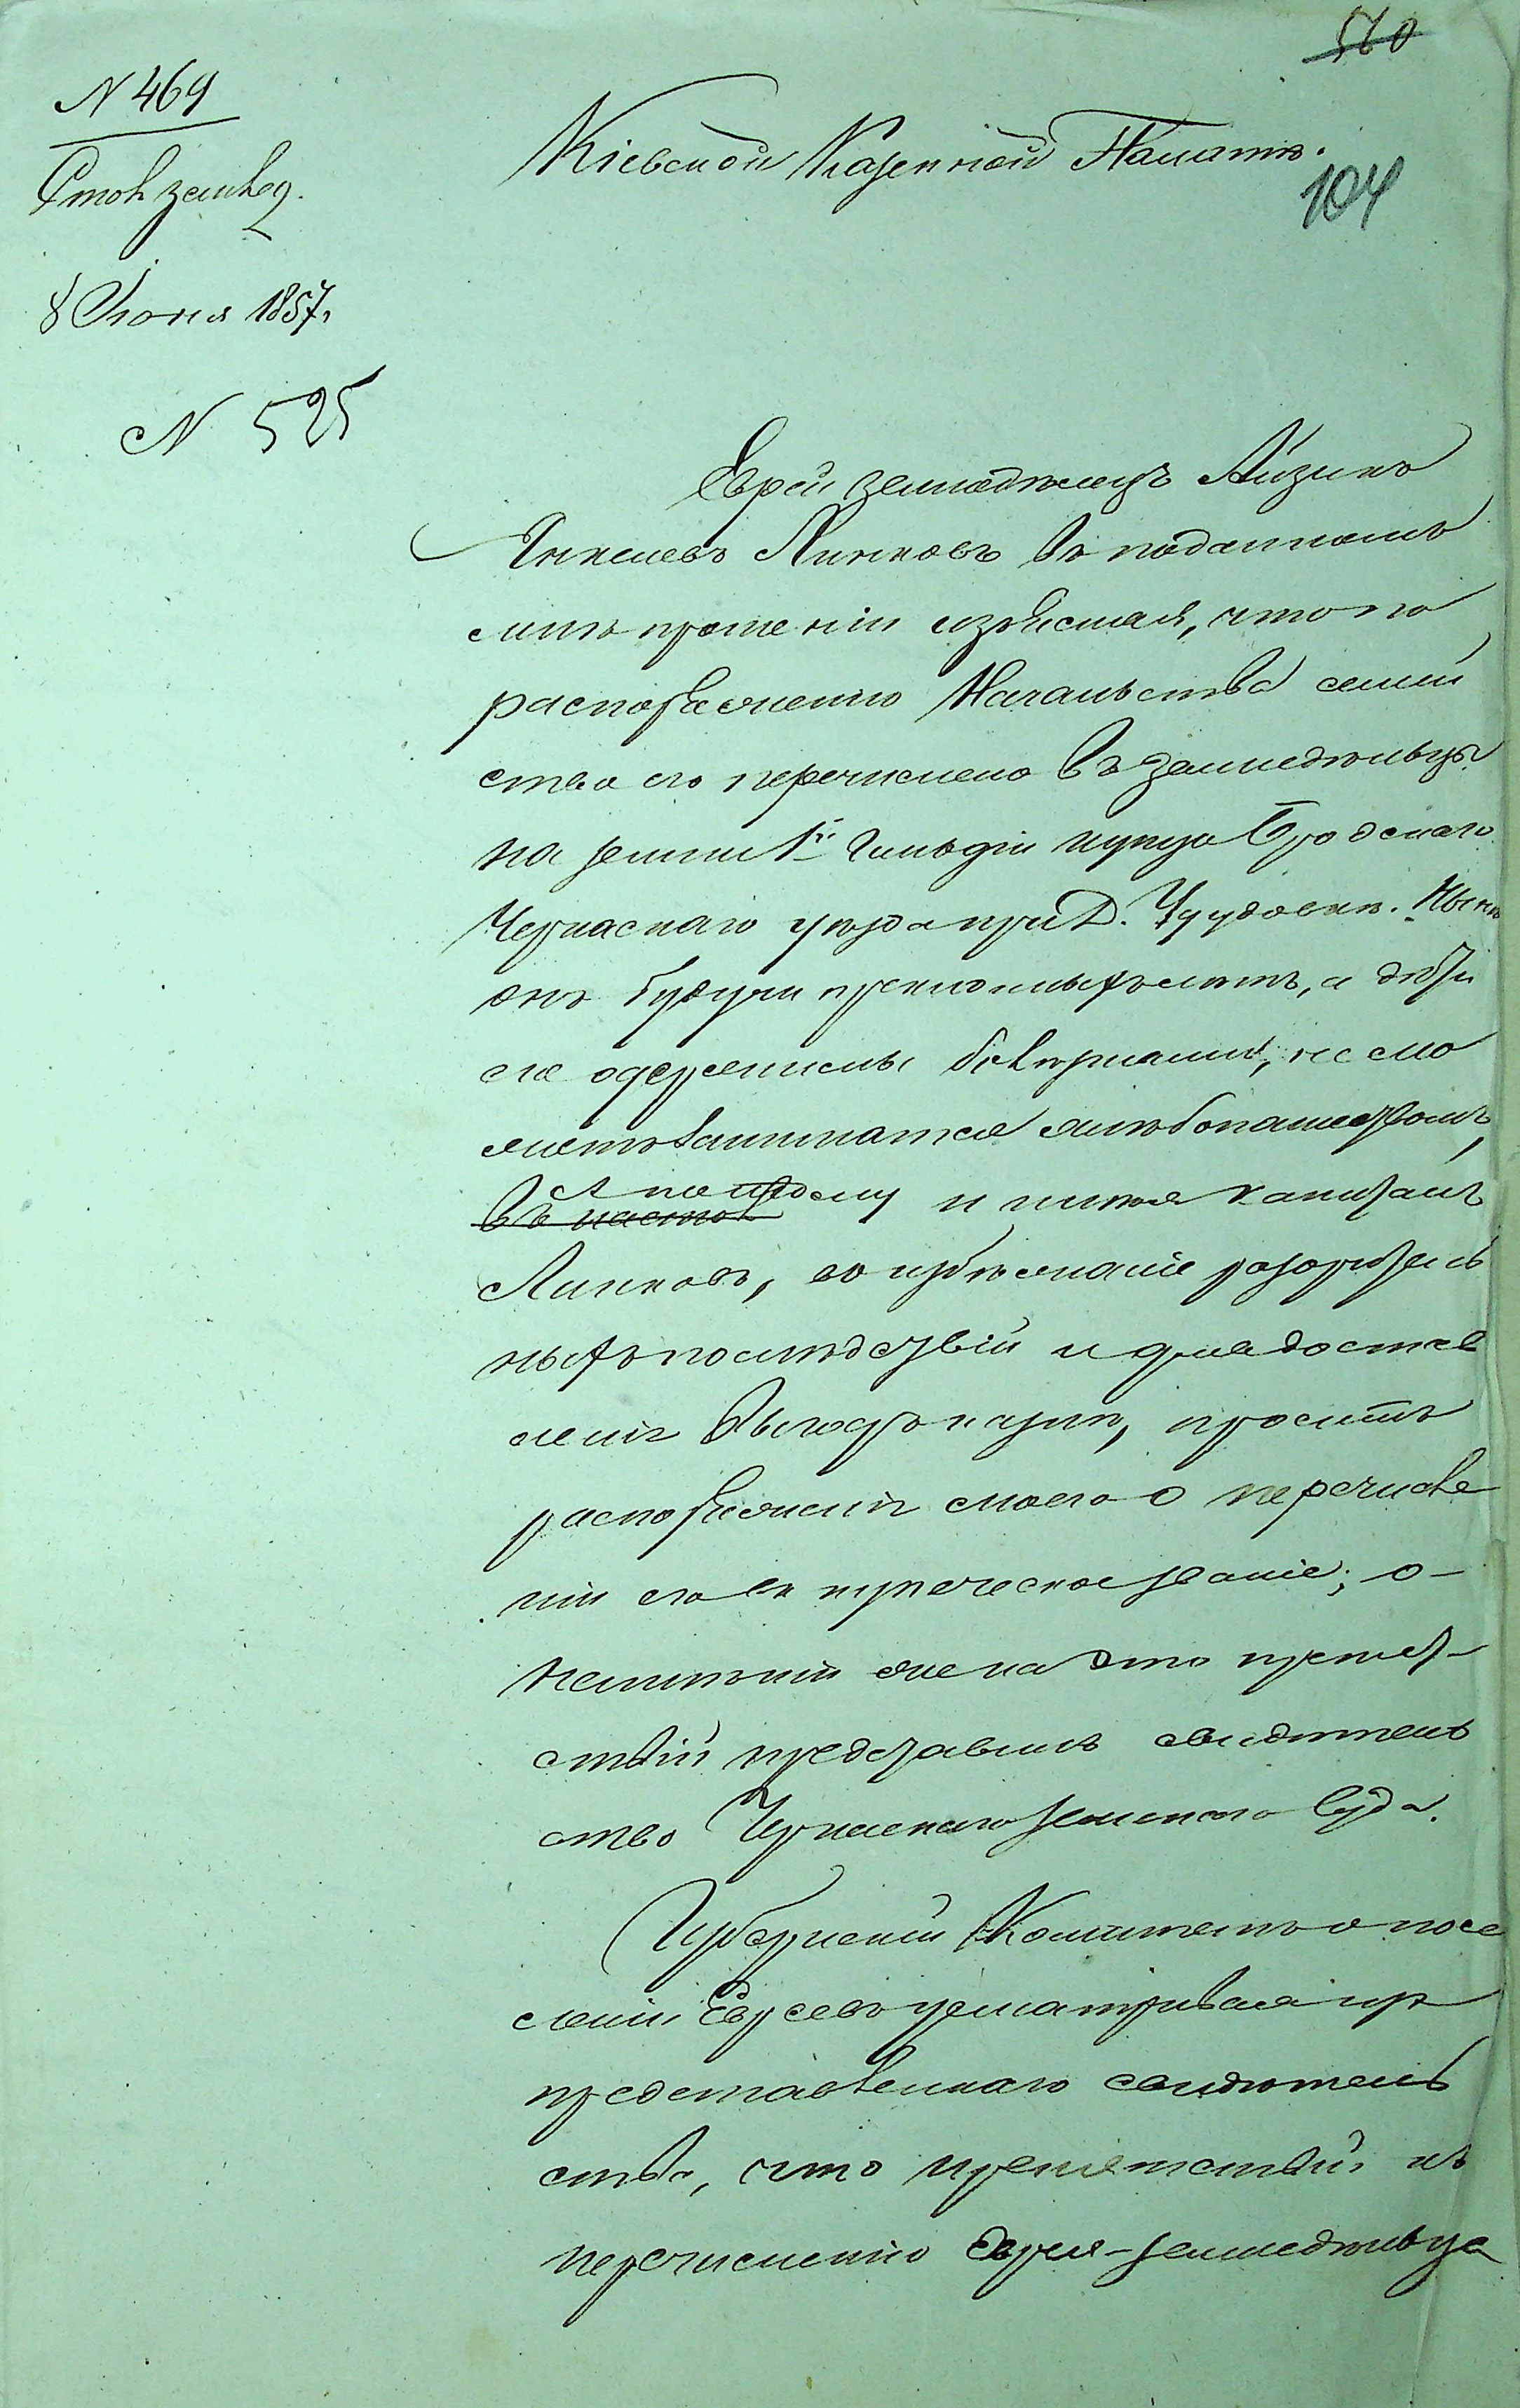 560
N 469
Кіевской Казенной Палатѣ.
104
8 Іюня 1857.
N 525
Еврей земледѣлецъ Айзикъ
Липковъ въ поданномъ
мнѣ прошеніи изъяснялъ, что по
распоряженію Начальства семей
ство его перечислено въ земледѣльцы
на земли 1й гильдіи купца Бродскаго
Черкаскаго уѣзда при д. Чудовкѣ. Нынѣ
онъ будучи преклонныхъ лѣтъ, а дѣти
его одержимы болѣзнями, не мо
жетъ заниматся хлѣбопашествомъ,
въ настоя
а потому и имѣя капиталъ
Липковъ, во избѣжаніе разоритель
ныхъ послѣдствій и для доставле
ленія выгодъ казнѣ, проситъ
распоряженія моего о перечисле
ніи его въ купеческое званіе; о-
неимѣніи же на это препят-
ствій представилъ свидѣтель
ство Черкаскаго Земскаго Суда.
Губернскій Комитетъ о посе
леніи Евреевъ усматривая изъ
представленнаго свидѣтель
ства, что препятствій къ
перечисленію Еврея-земледѣльца